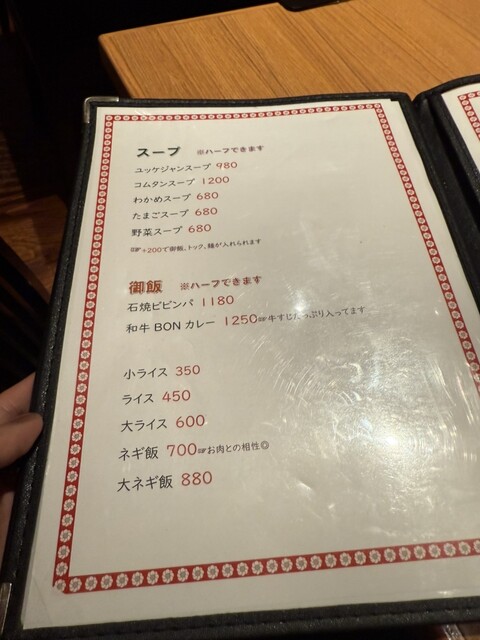 スープ ※ハーフできます
ユッケジャンスープ 980
コムタンスープ 1200
わかめスープ 680
たまごスープ 680
野菜スープ 680
☞+200で御飯、トック、麺が入れられます
御飯 ※ハーフできます
石焼ビビンバ 1180
和牛 BON カレー 1250☞牛すじたっぷり入ってます
小ライス 350
ライス 450
大ライス 600
ネギ飯 700☞お肉との相性◎
大ネギ飯 880